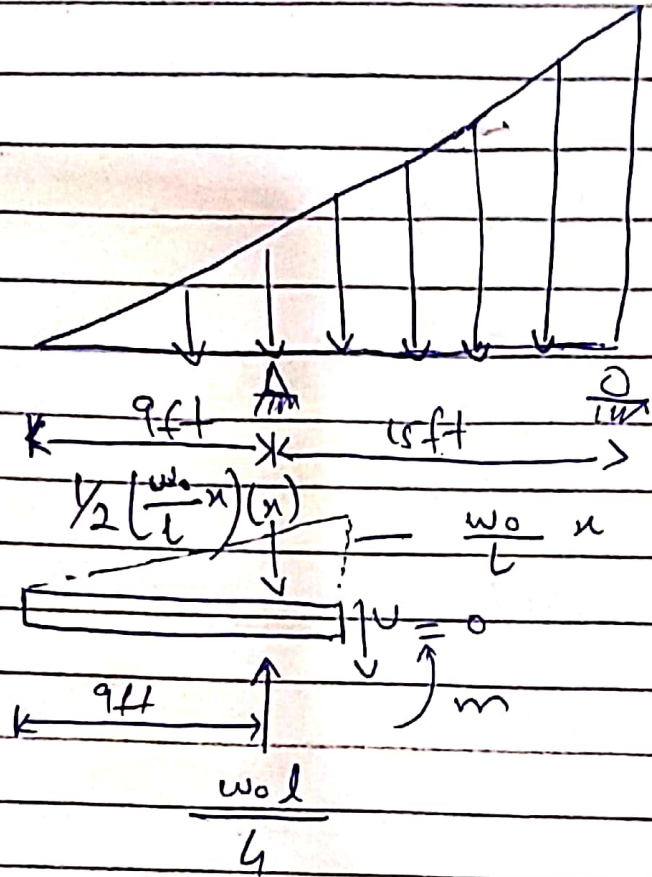 9ft 15ft
1/2 (w₀/l x) (x)
w₀/L x
v = 0
9ft m
w₀l/4